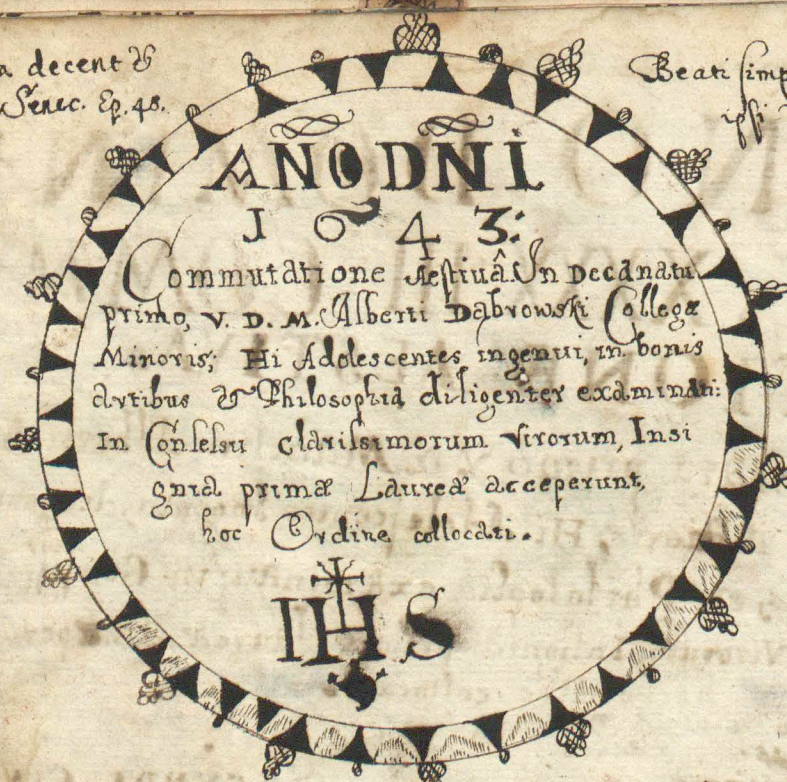 decent &
Senec. Ep. 48.
Beati simp
ipsi
ANO DNI
1643:
Commutatione Aestiuâ. In Decanatu
primo, V. D. M. Alberti Dąbrowski Collegæ
Minoris; Hi Adolescentes ingenui, in bonis
artibus & Philosophia diligenter examinati:
In Consessu clarissimorum virorum, Insi
gnia primæ Laureæ acceperunt,
hoc Ordine collocati.
IHS